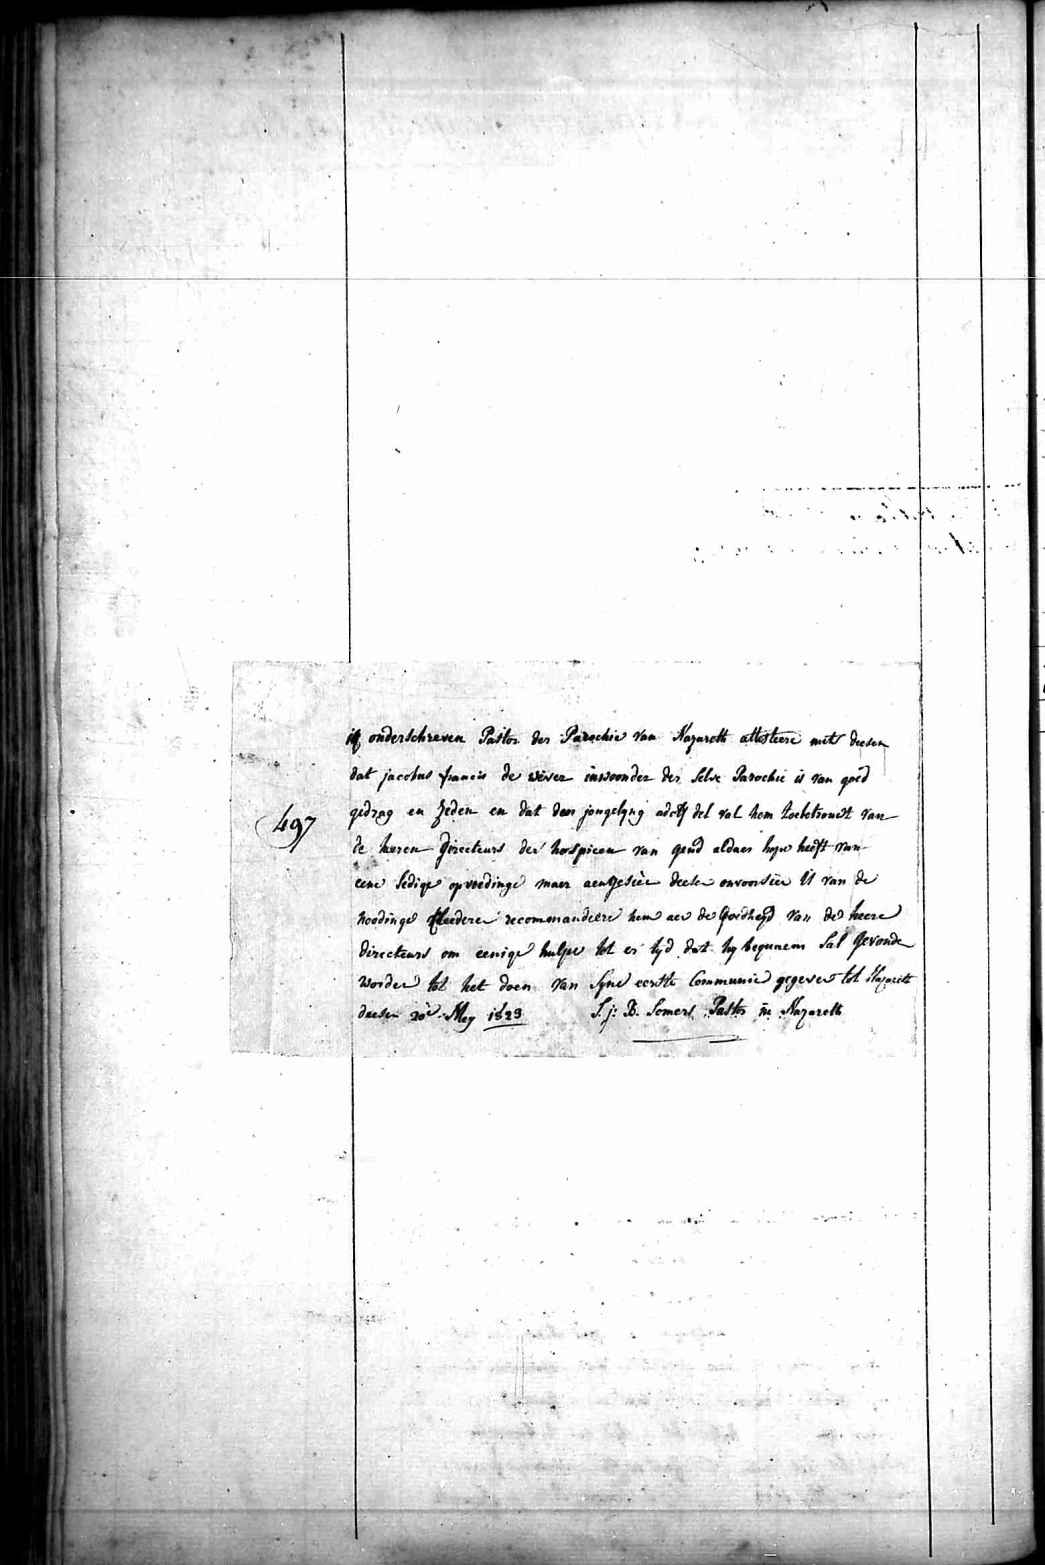 ik onderschreven Pastor der Parochie van Nazareth attesteere mits deesen
dat jacobus francis de wever inwoonder der selve Parochie is van goed
gedrag en Zeden en dat den jongelyng adolf del val hem toebetrouwt van
497
de heeren Directeurs der hospicen van gend aldaer hope heeft van
eene sedige opvoedinge maer aengesien deesen onvoorsien is van de
noodinge kleederen recommandeere hem aen de goedheyd van de heere
directeurs om eenige hulpe tot er tyd dat hy bequaem sal gevonde
worden tot het doen van syne eerste Communie gegeven tot Nazareth
deesen 20e Mey 1823 S. j: B. Somers Pastor in Nazareth